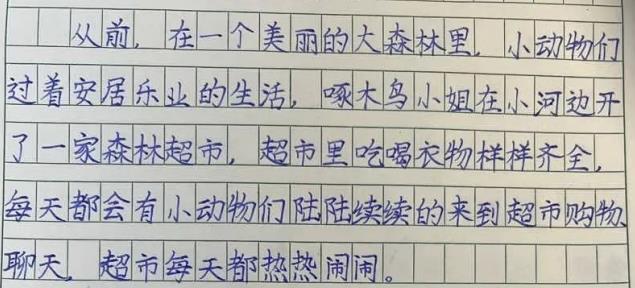 从前，在一个美丽的大森林里，小动物们
过着安居乐业的生活，啄木鸟小姐在小河边开
了一家森林超市，超市里吃喝衣物样样齐全，
每天都会有小动物们陆陆续续的来到超市购物、
聊天，超市每天都热热闹闹。